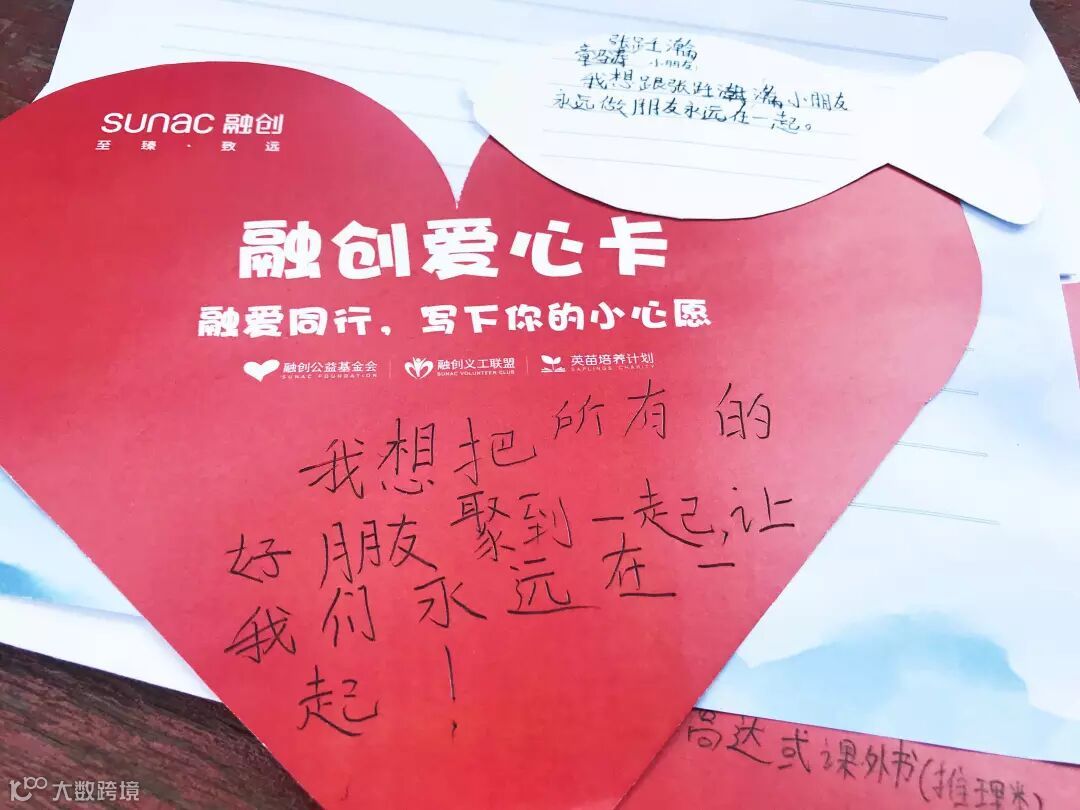 张跹瀚
小朋友
我想跟张跹瀚小朋友
永远做朋友永远在一起。
sunac 融创
至臻·致远
融创爱心卡
融爱同行，写下你的小心愿
融创公益基金会
SUNAC FOUNDATION
融创义工联盟
SUNAC VOLUNTEER CLUB
英苗培养计划
SAPLINGS CHARITY
我想把所有的
好朋友聚到一起,让
我们永远在一
起!
高达或课外书(推理类)
大数跨境